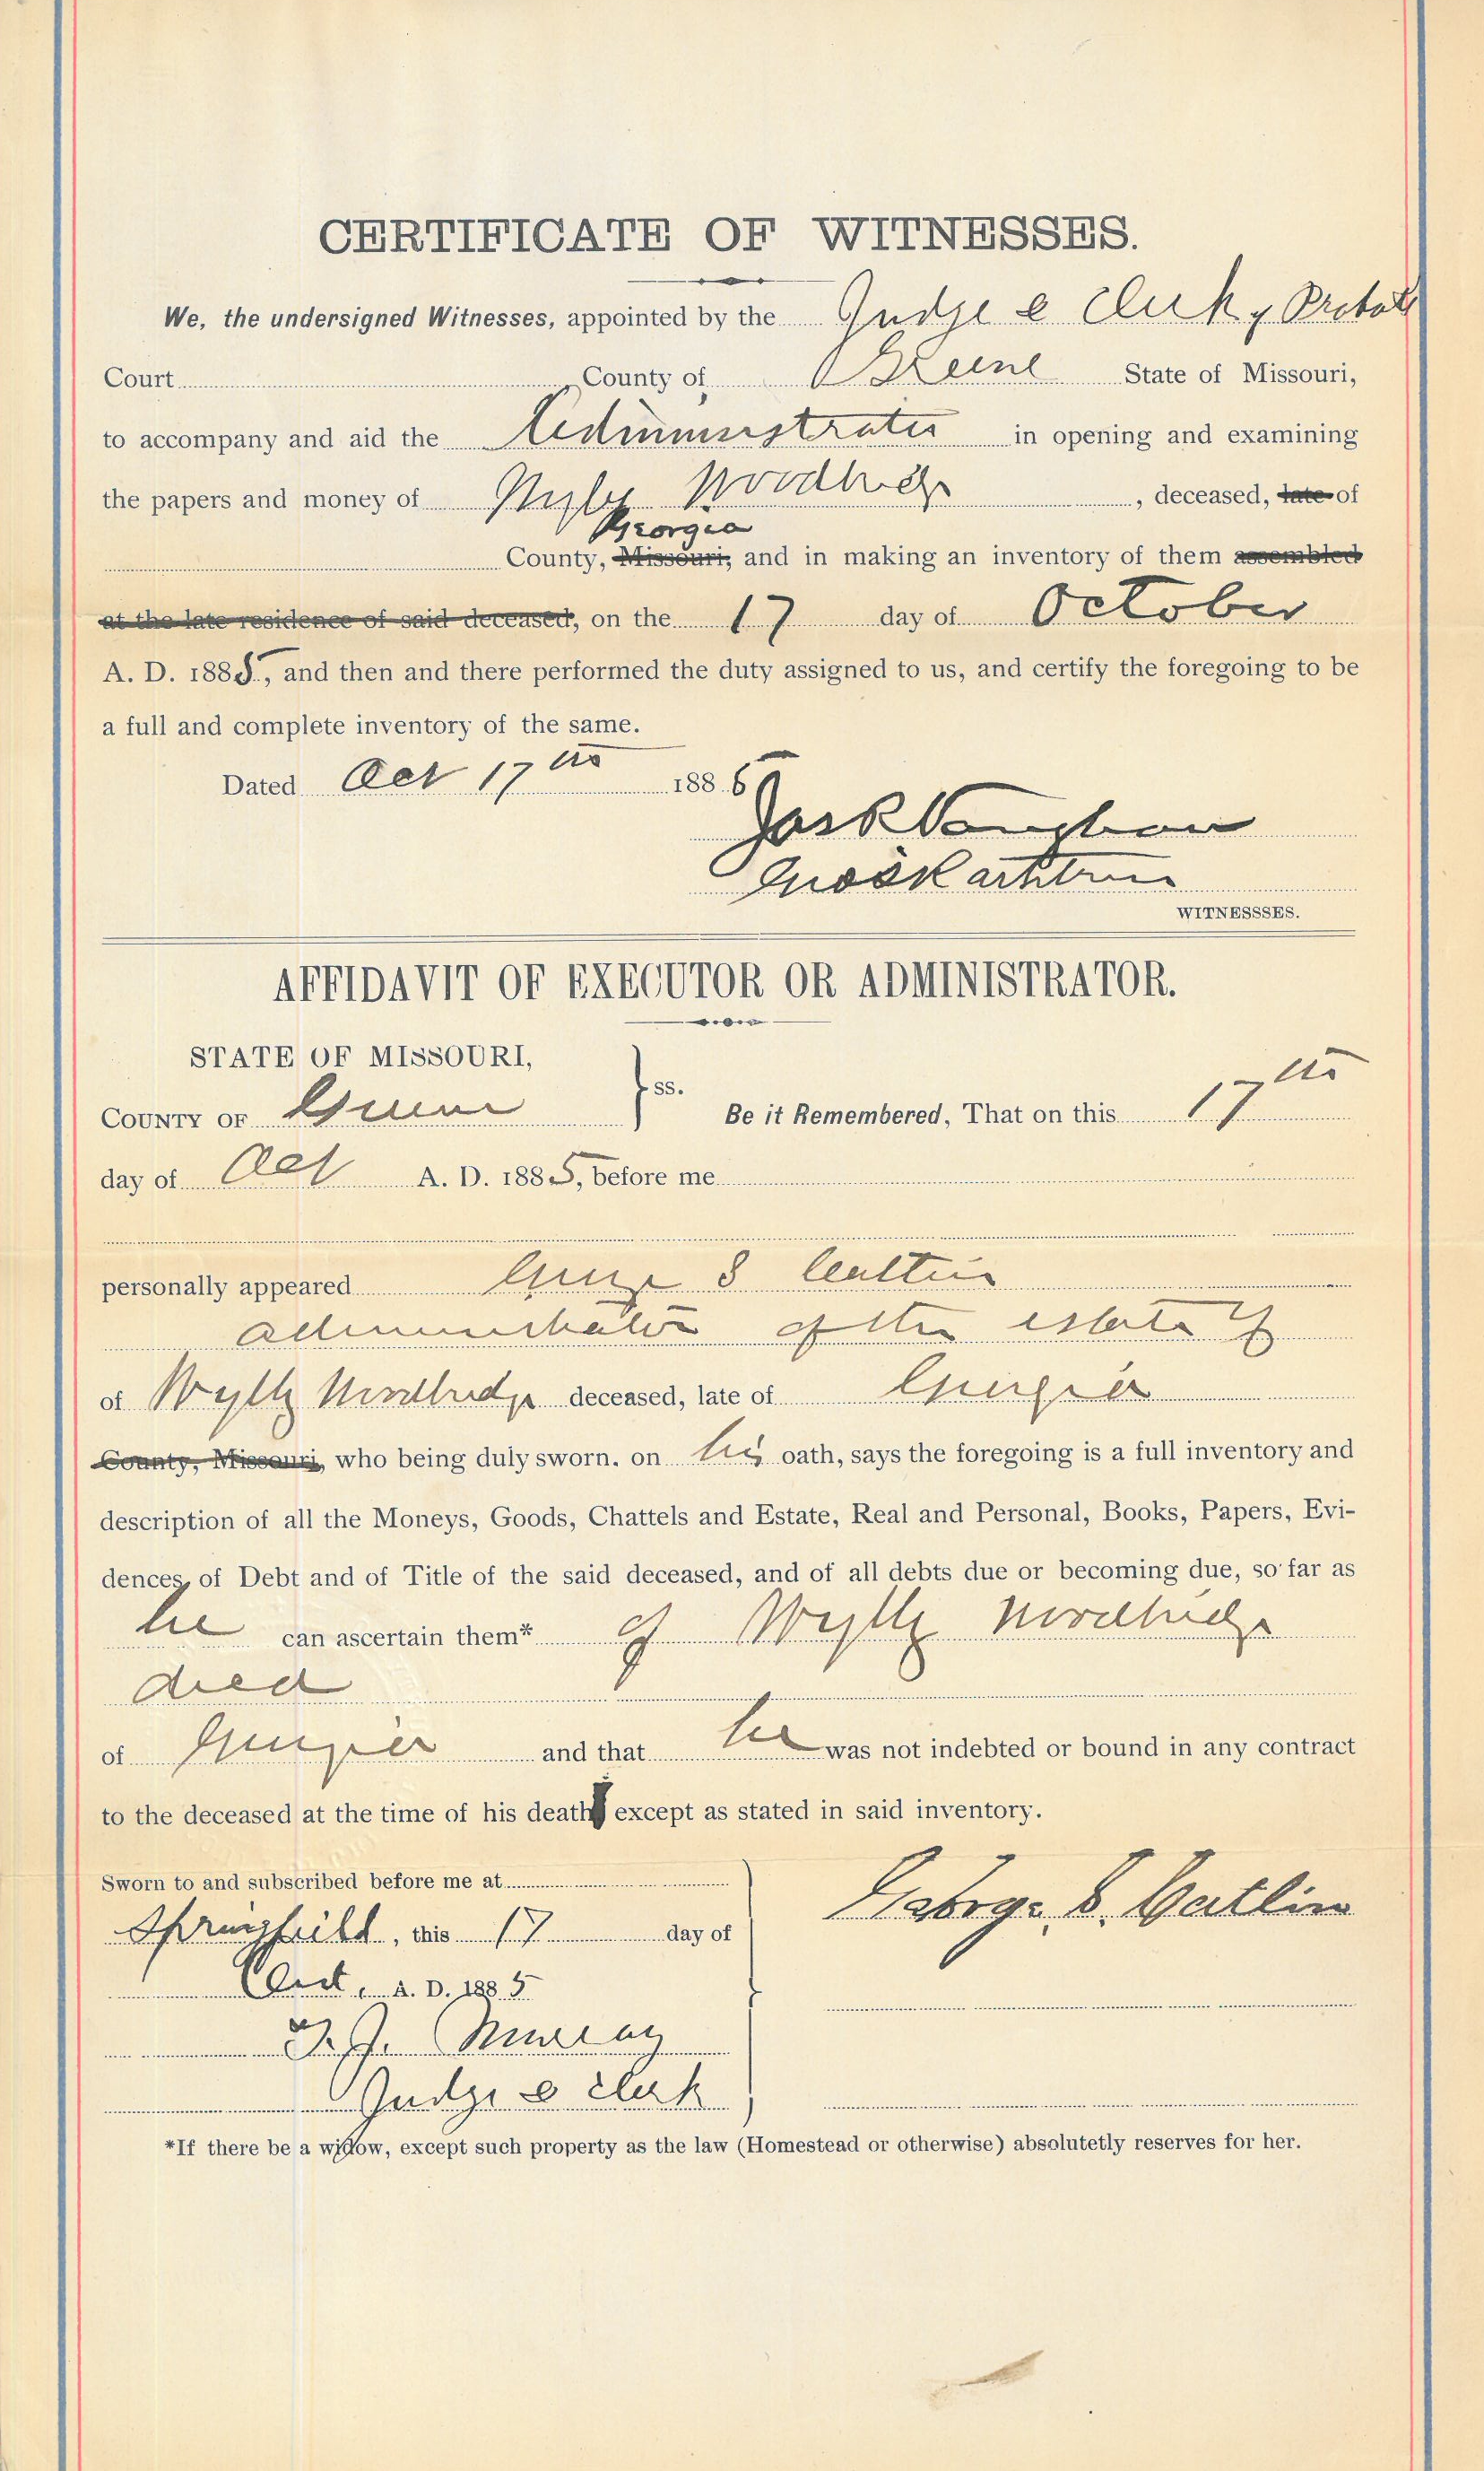 CERTIFICATE OF WITNESSES.
We, the undersigned Witnesses, appointed by the Judge & Clerk of Probate
Court County of Greene State of Missouri,
to accompany and aid the Administrator in opening and examining
the papers and money of Wylly Woodbridge, deceased, late of
Georgia
County, Missouri, and in making an inventory of them assembled
at the late residence of said deceased, on the 17 day of October
A. D. 1885, and then and there performed the duty assigned to us, and certify the foregoing to be
a full and complete inventory of the same.
Dated Oct 17th 1885
Vaughan
WITNESSSES.
AFFIDAVIT OF EXECUTOR OR ADMINISTRATOR.
STATE OF MISSOURI,
COUNTY OF Greene } ss. Be it Remembered, That on this 17th
day of Oct A. D. 1885, before me
personally appeared George S Catlin
administrator of the estate of
of Wylly Woodbridge deceased, late of Georgia
County, Missouri, who being duly sworn. on his oath, says the foregoing is a full inventory and
description of all the Moneys, Goods, Chattels and Estate, Real and Personal, Books, Papers, Evi-
dences, of Debt and of Title of the said deceased, and of all debts due or becoming due, so far as
he can ascertain them* of Wylly Woodbridge
decd
of Georgia and that he was not indebted or bound in any contract
to the deceased at the time of his death except as stated in said inventory.
Sworn to and subscribed before me at
Springfield, this 17 day of
Oct, A. D. 1885
George S. Catlin
Murray
Judge & Clerk
*If there be a widow, except such property as the law (Homestead or otherwise) absolutetly reserves for her.